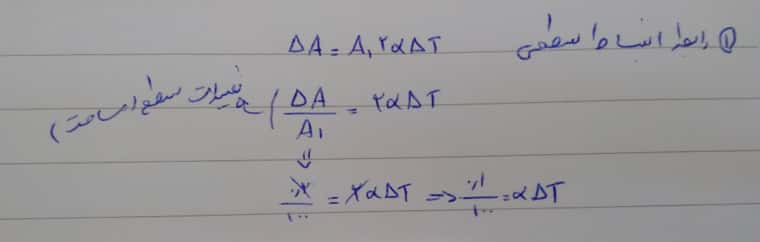 ① رابطه انبساط سطحی ΔA = A₁ ۲αΔT
ΔA/A₁ = ۲αΔT ← تغییرات سطح (مساحت)
⇓
٪۲/۱۰۰ = ۲αΔT ⇒ ٪۱/۱۰۰ = αΔT